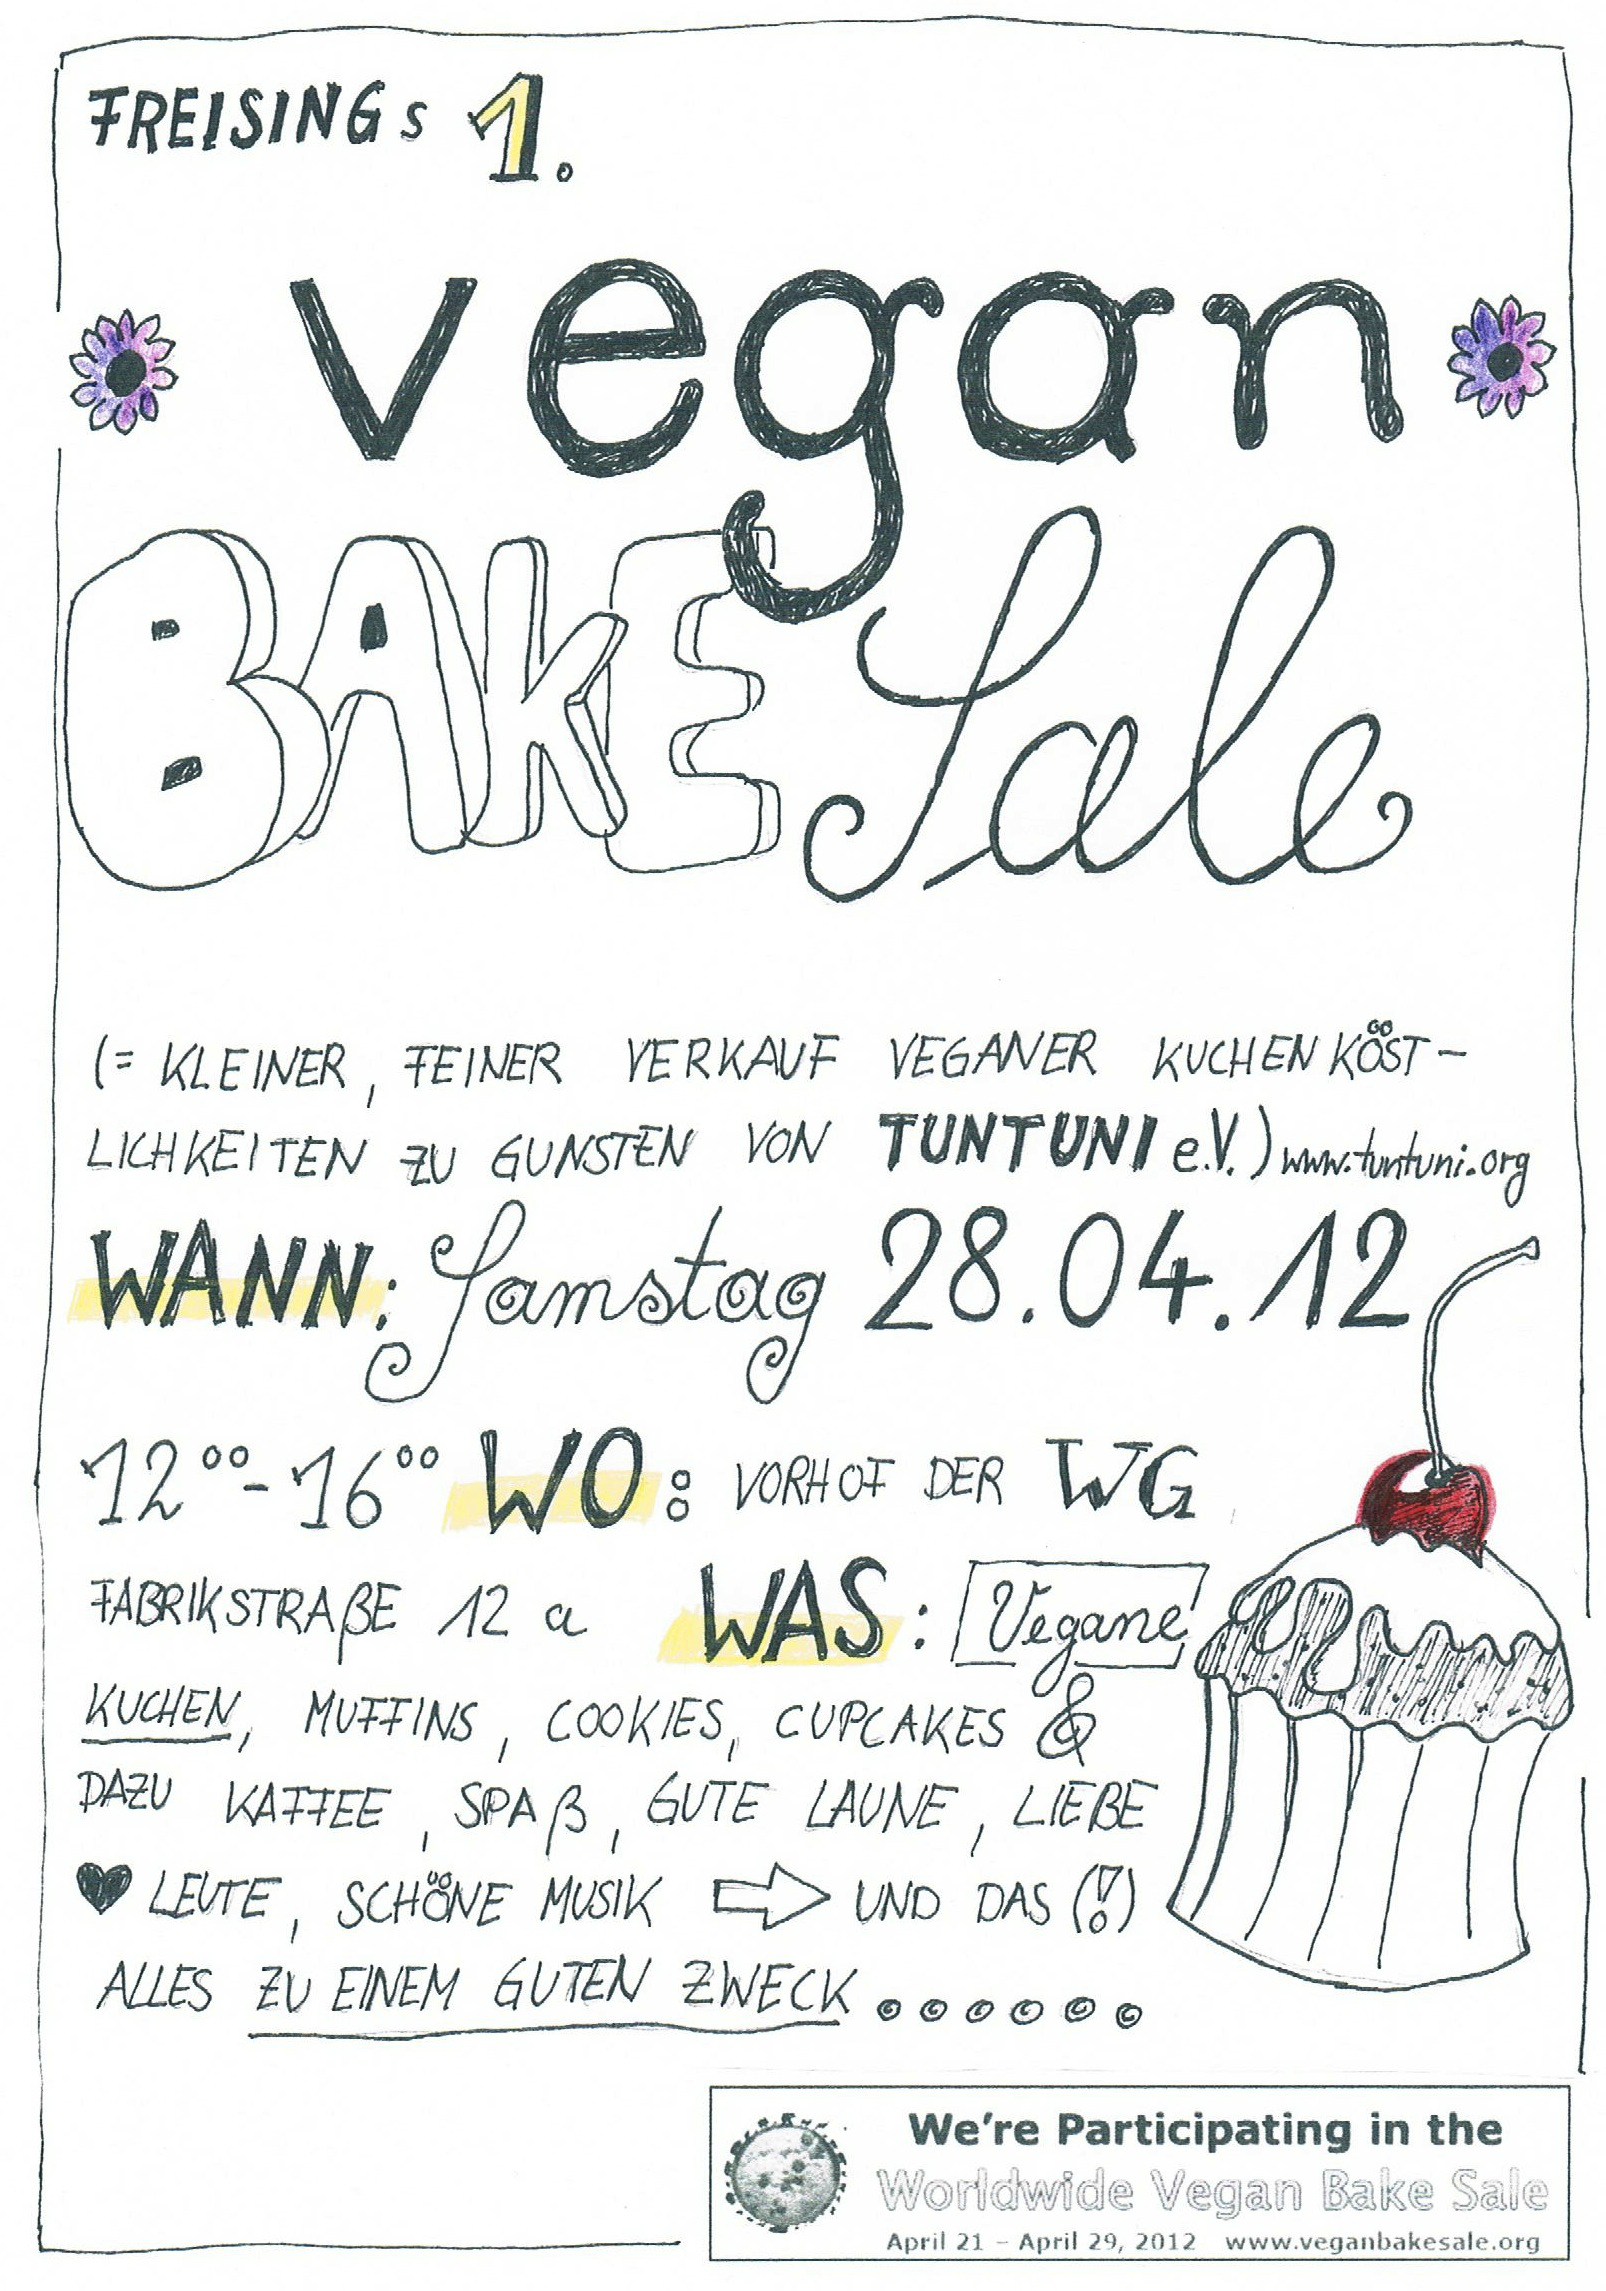 FREISINGs 1.
vegan
BAKE Sale
(= KLEINER, FEINER VERKAUF VEGANER KUCHENKÖST-
LICHKEITEN ZU GUNSTEN VON TUNTUNI e.V.) www.tuntuni.org
WANN: Samstag 28.04.12
12⁰⁰-16⁰⁰ WO: VORHOF DER WG
FABRIKSTRAßE 12 a WAS: Vegane
KUCHEN, MUFFINS, COOKIES, CUPCAKES &
DAZU KAFFEE, SPAß, GUTE LAUNE, LIEBE
♥ LEUTE, SCHÖNE MUSIK ⇨ UND DAS (!)
ALLES ZU EINEM GUTEN ZWECK......
We're Participating in the
Worldwide Vegan Bake Sale
April 21 – April 29, 2012 www.veganbakesale.org